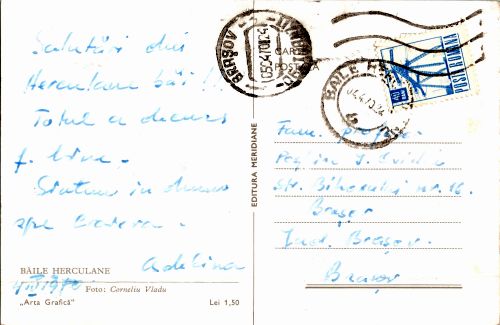 Salutări din
Herculane băi!!
Totul a decurs
f. bine.
Suntem în drum
spre
Adelina
BĂILE HERCULANE
Foto: Corneliu Vladu
„Arta Grafică”
Lei 1,50
EDITURA MERIDIANE
CARTE
POȘTALĂ
BRAȘOV
BĂILE
POSTA ROMANA
Fam. profesor
I. Ovidiu
Str. Bihorului nr. 16.
Brașov
Jud. Brașov.
Brașov